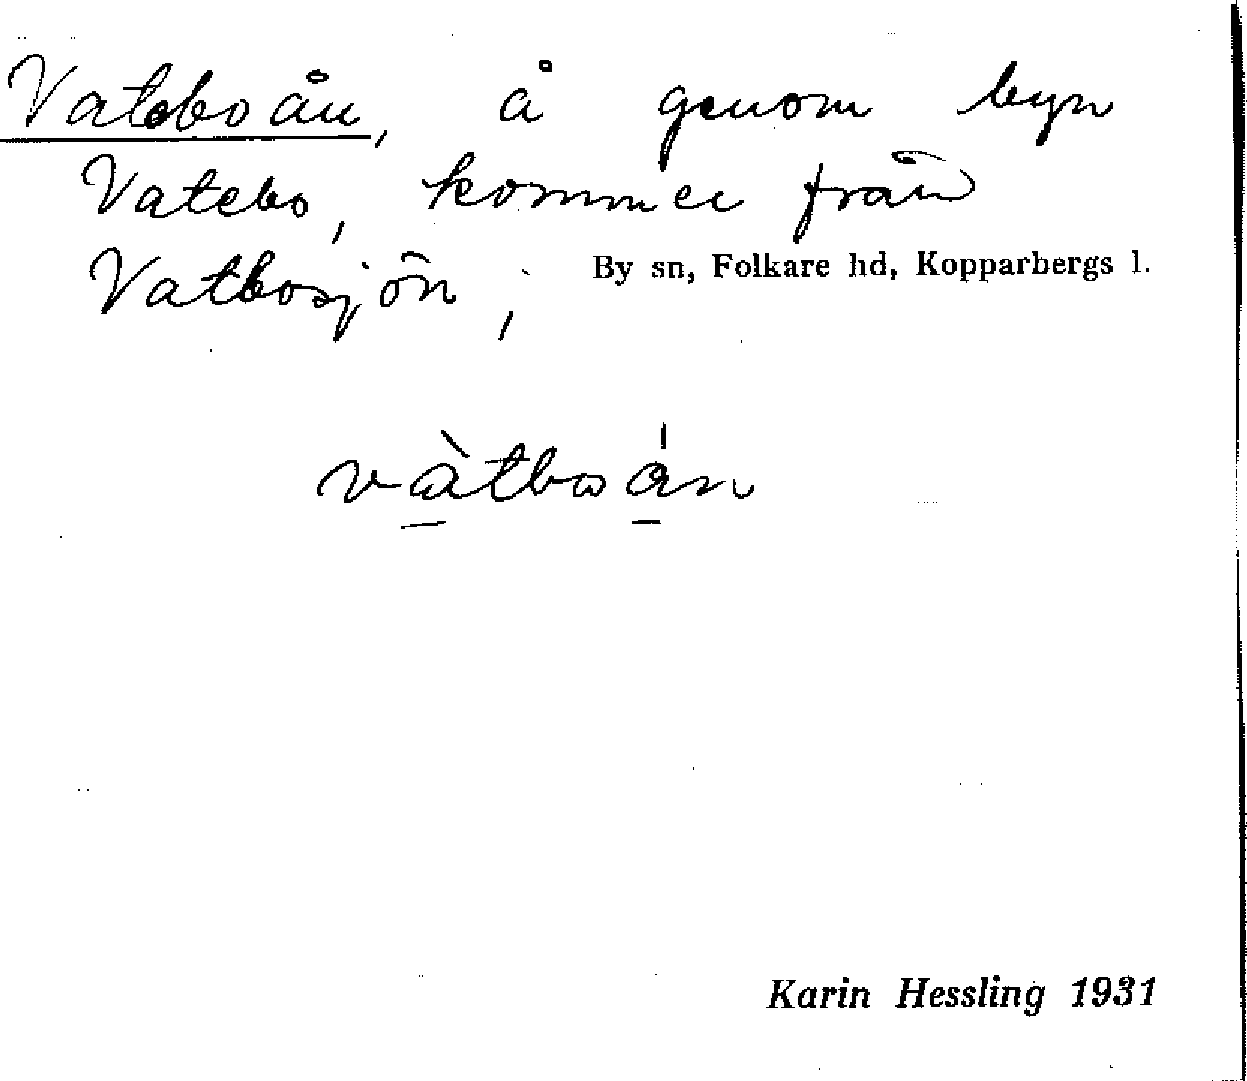 Vateboån, å genom byn
Vatebo, kommer från
Vatbosjön;
By sn, Folkare hd, Kopparbergs l.
và̱tboá̱n
Karin Hessling 1931